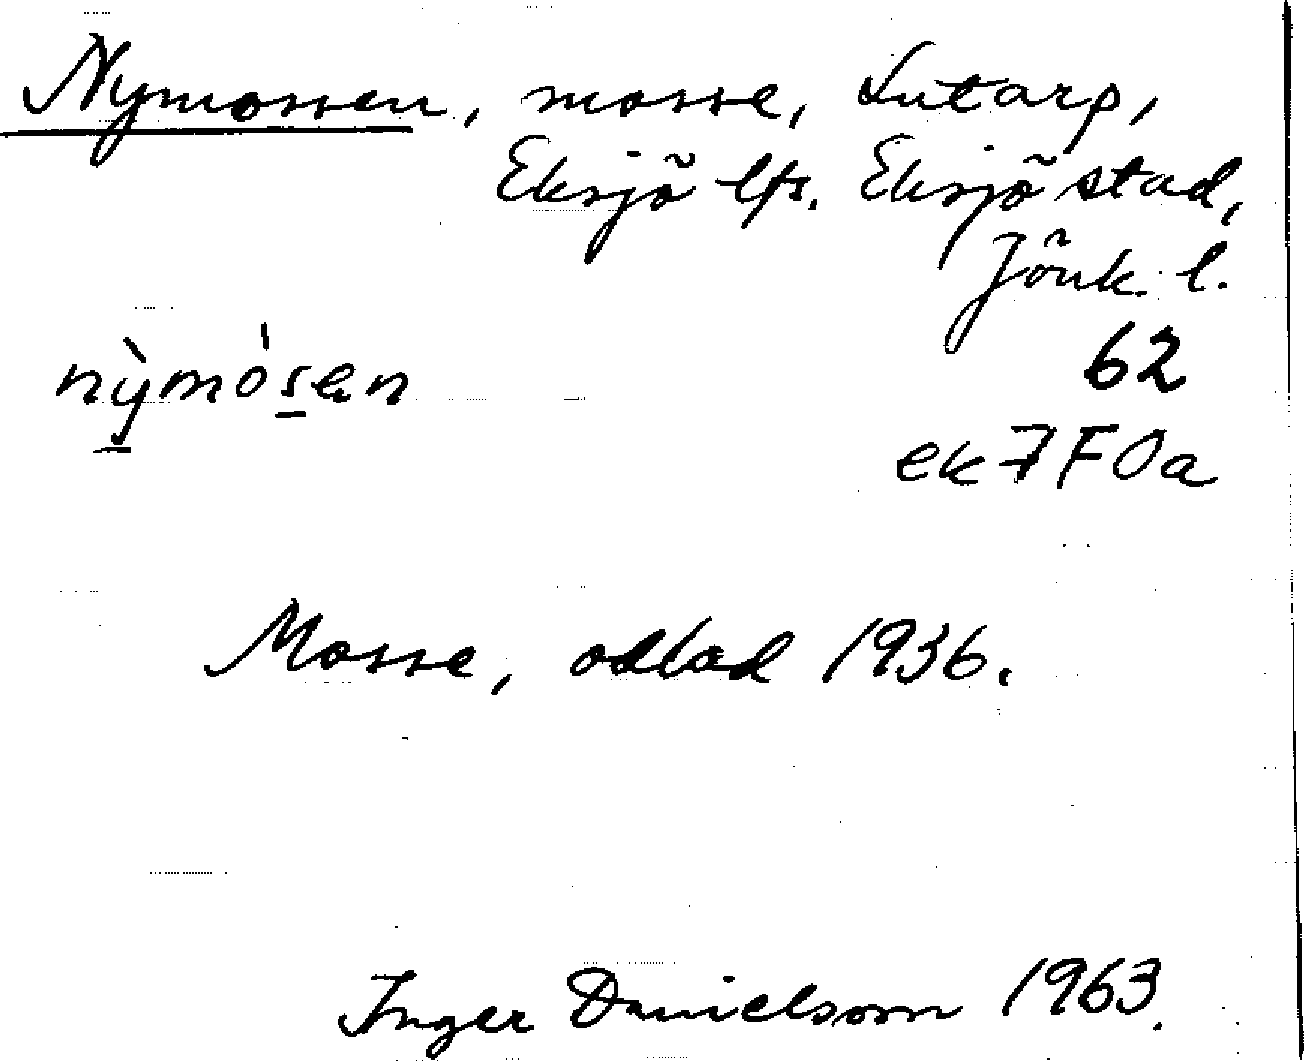 Nymossen, mosse, Lutarp,
Eksjö lfs. Eksjö stad,
Jönk. l.
nỳmós̲en
62
ek 7F0a
Mosse, odlad 1936.
Inger Danielsson 1963.